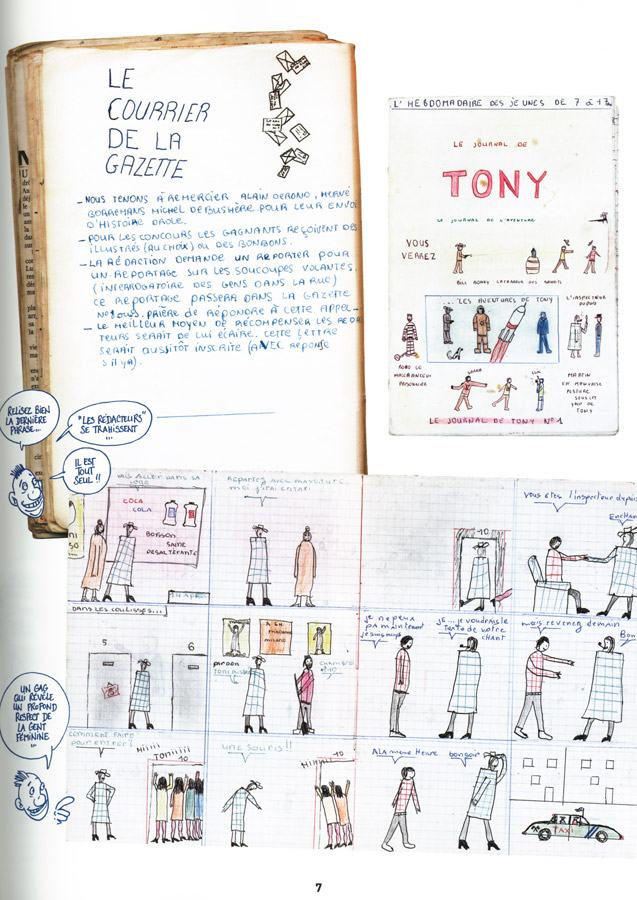 LE
COURRIER
DE LA
GAZETTE
— NOUS TENONS À REMERCIER ALAIN DEROND, HERVÉ
BORREMANS MICHEL DEBUSHÈRE POUR LEUR ENVOI
D'HISTOIRE DROLE.
— POUR LES CONCOURS LES GAGNANTS REÇOIVENT DES
ILLUSTRÉS (AU CHOIX) OU DES BONBONS.
— LA RÉDACTION DEMANDE UN REPORTER POUR
UN REPORTAGE SUR LES SOUCOUPES VOLANTES.
(INTERROGATOIRE DES GENS DANS LA RUE)
CE REPORTAGE PASSERA DANS LA GAZETTE
PRIÈRE DE RÉPONDRE À CETTE APPEL —
— LE MEILLEUR MOYEN DE RÉCOMPENSER LES RÉDAC
TEURS SERAIT DE LUI ÉCRIRE. CETTE LETTRE
SERAIT AUSSITÔT INSCRITE (AVEC RÉPONSE
S'IL Y A).
L'HEBDOMADAIRE DES JEUNES DE 7 à 17
LE JOURNAL DE
TONY
LE JOURNAL DE L'AVENTURE
VOUS
VERREZ
BILL BOBBY
...LES AVENTURES DE TONY
L'INSPECTEUR
DUPUIS
ROBO LE
MALCHANCEUX
PRISONNIER
MARTIN
EN MAUVAISE
POSTURE
SOUS LES
YEUX DE
TONY
LE JOURNAL DE TONY N°1
RELISEZ BIEN
LA DERNIÈRE
PHRASE...
"LES RÉDACTEURS"
SE TRAHISSENT
...
IL EST
TOUT
SEUL !!
VAIS ALLER DANS SA
LOGE
COCA
COLA
BOISSON
SAINE
DÉSALTÉRANTE
REPARTEZ AVEC MA VOITURE
10
VOUS ÊTES l'inspecteur dupuis
ENCHAN
DANS LES COULISSES...
5
6
A LA
MILANO
pardon
CHAMBRE
10
je ne peux
pas maintenant
JE... JE voudrais le
texte de votre
CHANT
mais revenez demain
Bon
UN GAG
QUI RÉVÈLE
UN PROFOND
RESPECT DE
LA GENT
FÉMININE
...
COMMENT FAIRE
POUR ENTRER?
Hiiiii
Toniiiii
10
UNE SOURIS!!
Hiiiiii
10
A LA même HEURE
bonsoir
TAXI
7